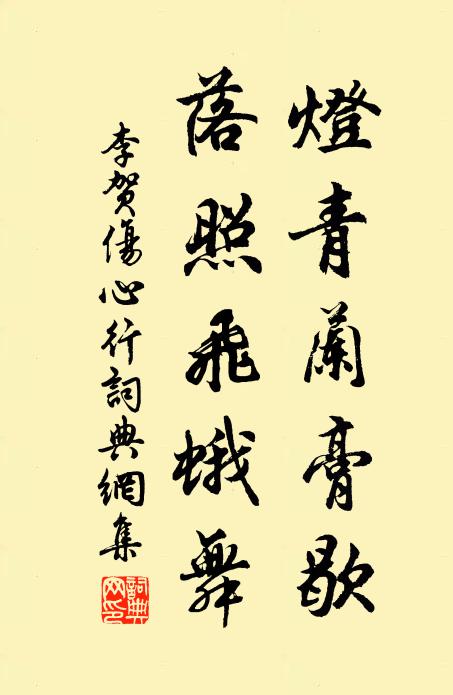 燈青蘭膏歇
落照飛蛾舞
李賀傷心行詞典網集